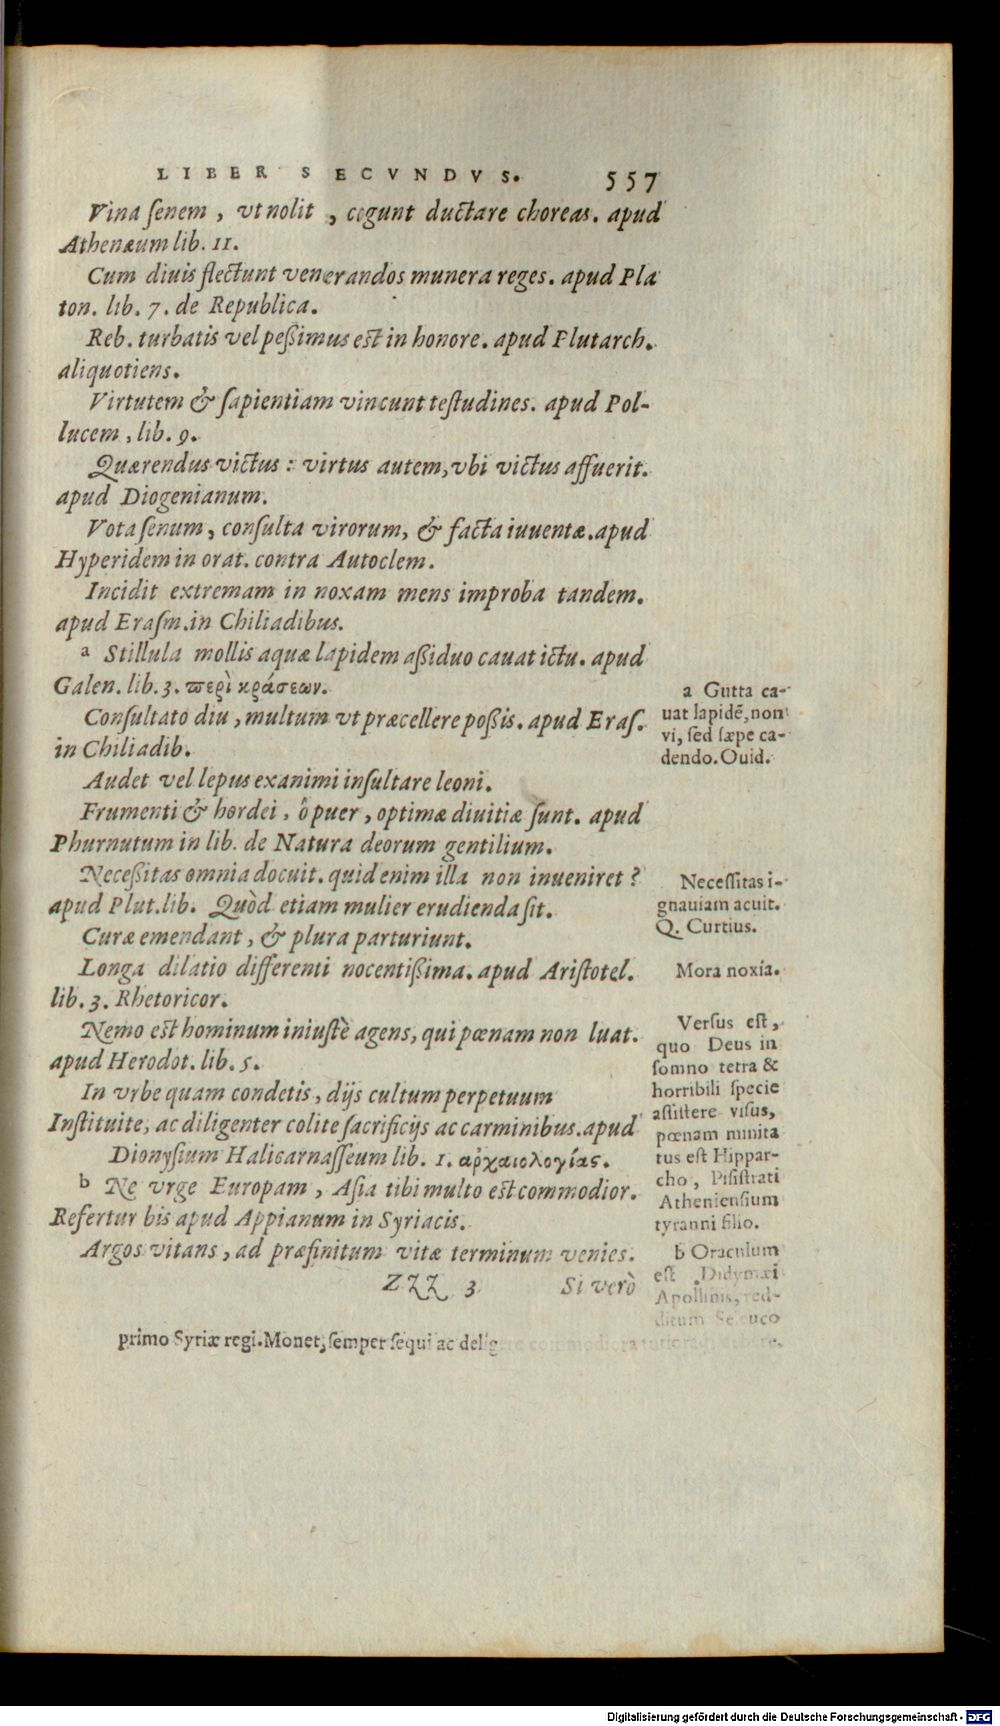 LIBER SECVNDVS. 557
Vina senem, vt nolit, cogunt ductare choreas. apud
Athenæum lib. 11.
Cum diuis flectunt venerandos munera reges. apud Pla
ton. lib. 7. de Republica.
Reb. turbatis vel peßimus est in honore. apud Plutarch.
aliquotiens.
Virtutem & sapientiam vincunt testudines. apud Pol-
lucem, lib. 9.
Quærendus victus: virtus autem, vbi victus affuerit.
apud Diogenianum.
Vota senum, consulta virorum, & facta iuuentæ. apud
Hyperidem in orat. contra Autoclem.
Incidit extremam in noxam mens improba tandem.
apud Erasm. in Chiliadibus.
a Stillula mollis aquæ lapidem aßiduo cauat ictu. apud
Galen. lib. 3. περὶ κράσεων.
Consultato diu, multum vt præcellere poßis. apud Eras.
in Chiliadib.
Audet vel lepus exanimi insultare leoni.
Frumenti & hordei, ô puer, optimæ diuitiæ sunt. apud
Phurnutum in lib. de Natura deorum gentilium.
Neceßitas omnia docuit. quid enim illa non inueniret?
apud Plut. lib. Quòd etiam mulier erudienda sit.
Curæ emendant, & plura parturiunt.
Longa dilatio differenti nocentißima. apud Aristotel.
lib. 3. Rhetoricor.
Nemo est hominum iniustè agens, qui pœnam non luat.
apud Herodot. lib. 5.
In vrbe quam condetis, dijs cultum perpetuum
Instituite, ac diligenter colite sacrificijs ac carminibus. apud
Dionysium Halicarnasseum lib. 1. αρχαιολογίας.
b Ne vrge Europam, Asia tibi multo est commodior.
Refertur bis apud Appianum in Syriacis.
Argos vitans, ad præfinitum vitæ terminum venies.
ZZZ 3 Si verò
a Gutta ca-
uat lapidē, non
vi, sed sæpe ca-
dendo. Ouid.
Necessitas i-
gnauiam acuit.
Q. Curtius.
Mora noxia.
Versus est,
quo Deus in
somno tetra &
horribili specie
assistere visus,
pœnam minita
tus est Hippar-
cho, Pisistrati
Atheniensium
tyranni filio.
b Oraculum
est Didymæi
Apollinis, red-
ditum Seleuco
primo Syriæ regi. Monet, semper sequi ac deligere commodiora
Digitalisierung gefördert durch die Deutsche Forschungsgemeinschaft - DFG